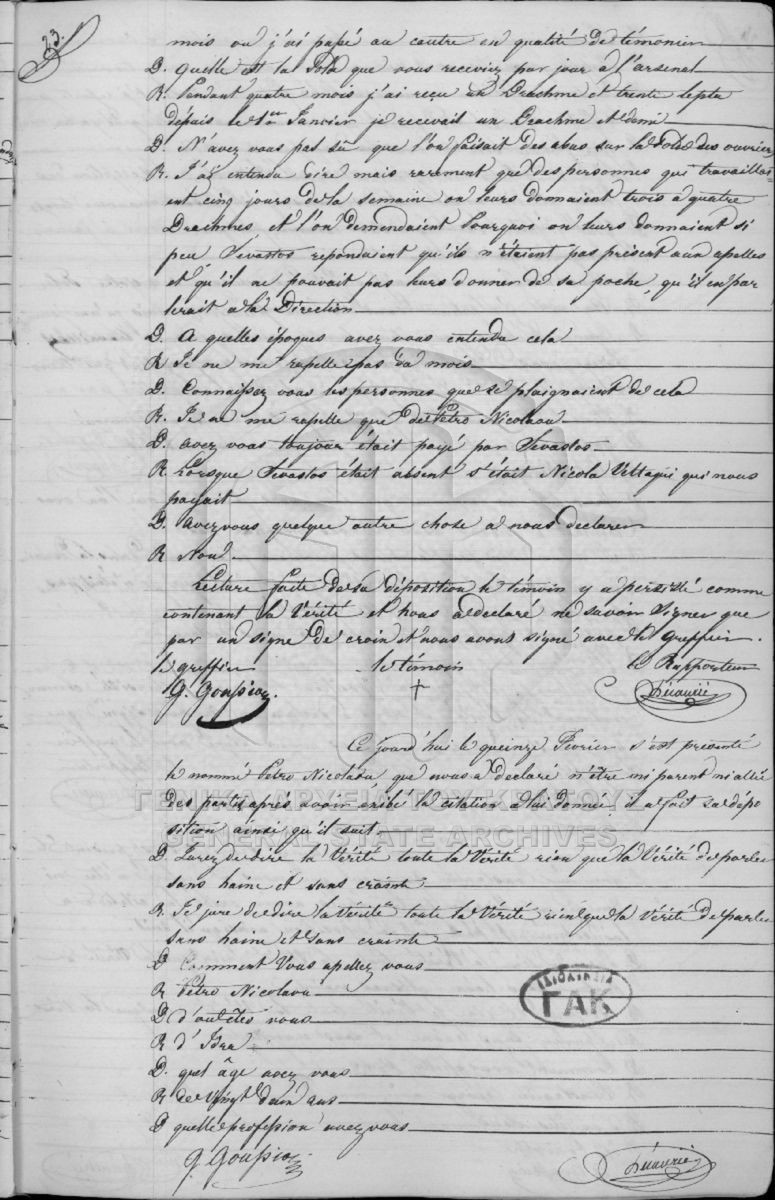 23.
mois ou j'ai passé au cautre en qualité de timonier
D. Quelle est la solde que vous receviez par jour à l'arsenal
R. Pendant quatre mois j'ai reçu un Drachme et trente lepta
dépuis le 1er Janvier je recevais un Drachme et demi
D. N'avez vous pas su que l'on faisait des abus sur la solde des ouvriers
R. J'ai entendu dire mais rarement que des personnes qui travaillai-
ent cinq jours de la semaine on leurs donnaient trois a quatre
Drachmes, et l'on demendaient pourquoi on leurs donnaient si
peu Sevastos repondaient qu'ils n'étaient pas présent aux apelles
et qu'il ne pouvait pas leurs donner de sa poche, qu'il en par
lerait a la Direction
D. A quelles époques avez vous entendu cela
R Je ne me rapelle pas du mois
D. Connaissez vous les personnes que se plaignaient de cela
R. Je ne me rapelle que de Petro Nicolaou
D. avez vous toujour était payé par Sevastos
R. Lorsque Sevastos était absent s'était Nicola Vettaqui qui nous
payait
D. avez vous quelque autre chose a nous declarer
R Non.
Lecture faite de sa déposition le témoin y a persisté comme
contenant la Vérité et nous a declaré ne savoir signer que
par un signe de croix et nous avons signé avec le greffier.
le greffier le témoin le Rapporteur
G. Goussio †
Ce jourd'hui le queinze Février s'est présenté
le nommé Petro Nicolaou que nous a declaré n'être ni parent ni allié
des partis après avoir exibé la citation a lui donnée, il a fait sa dépo
sition ainsi qu'il suit
D. Jurez de dire la Vérité toute la Vérité rien que la Vérité de parler
sans haine et sans crainte
R. Je jure de dire la vérité toute la Vérité rien que la Vérité de parler
sans haine et sans crainte
D Comment Vous apellez vous
R Petro Nicolaou
D d'ou êtes vous
R d'Idra
D. quel âge avez vous
R de Vingt deux ans
D quelle profession avez vous
G. Goussio
ΓΕΝΙΚΑ ΑΡΧΕΙΑ ΤΟΥ ΚΡΑΤΟΥΣ
GENERAL STATE ARCHIVES
ΓΑΚ